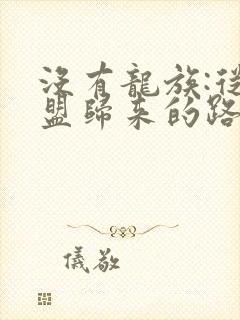 没有龍族:從
盟歸来的路
儀敬